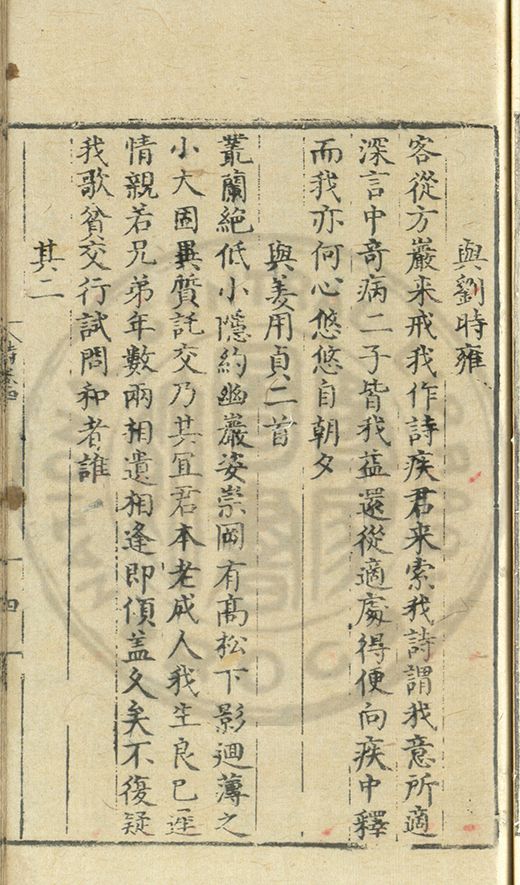 與劉時雍
客從方巖来戒我作詩疾君来索我詩謂我意所適
深言中竒病二子皆我益還從適處得便向疾中釋
而我亦何心悠悠自朝夕
與姜用貞二首
叢蘭絶低小隱約幽巖姿崇岡有髙松下影迴薄之
小大固異質託交乃其宜君本老成人我生良已遲
情親若兄弟年數兩相遺相逢即傾盖久矣不復疑
我歌貧交行試問和者誰
其二
詩卷四
十四